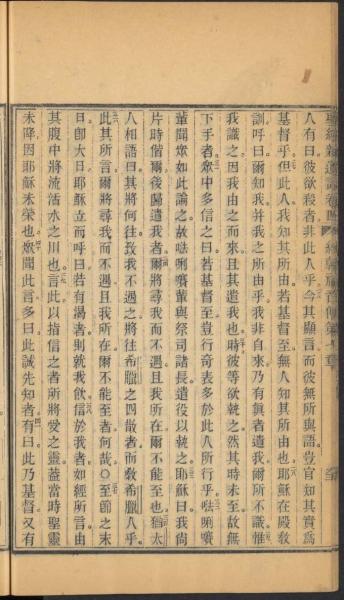 人有曰彼欲殺者非此人乎今其顯言而彼無所與語豈官知其實為
基督乎但此人我知其所由若基督至無人知其所由也耶穌在殿敎
訓呼曰爾知我並我之所由乎我非自來乃有眞者遣我爾所不識惟
我識之因我由之而來且其遣我也時彼等欲執之然其時未至故無
下手者衆中多信之曰若基督至豈行奇表多於此人所行乎㕸唎㘔
輩聞衆如此論之故㕸唎㘔輩與祭司諸長遣役以執之耶穌曰我尚
片時偕爾後歸遣我者爾將尋我而不遇且我所在爾不能至也猶太
人相語曰其將何往致我不遇之將往希臘之四散者而敎希臘人乎
此其所言爾將尋我而不遇且我所在爾不能至者何哉○至節之末
日卽大日耶穌立而呼曰若有渴者則就我飮信於我者如經所言由
其腹中將流活水之川也言此以指信之者所將受之靈蓋當時聖靈
未降因耶穌未榮也衆聞此言多曰此誠先知者有曰此乃基督又有